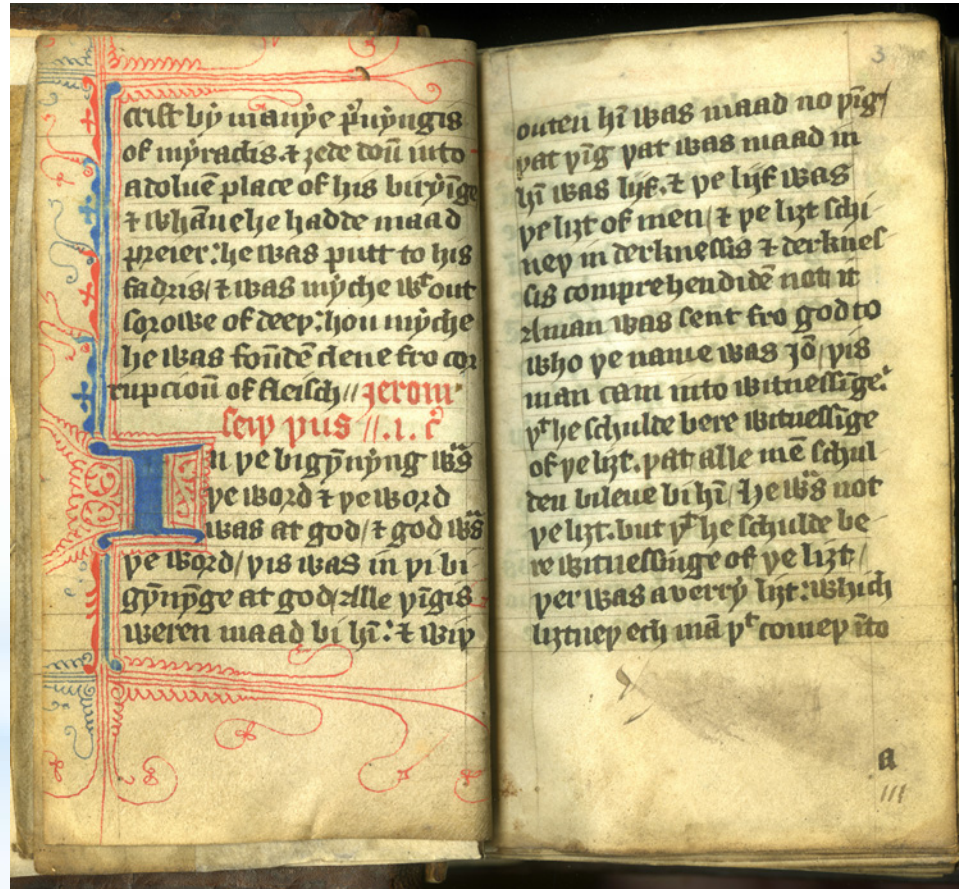 crist bẏ manẏe p̉uẏngis
of mẏraclis ⁊ ȝede doū into
a doluē place of his biryīge
⁊ whāne he hadde maad
preier: he was putt to his
fadris/ ⁊ was mẏche wᵗ out
sorowe of deeþ: hou mẏche
he was foūdē clene fro cor
rupcioū of fleisch // Jerom
seiþ þus //.1. c̉
In þe bigẏn̄ẏng wᵃs
þe word ⁊ þe word
was at god/ ⁊ god wᵃs
þe word/ þis was in þi bi
gẏn̄ẏge at god/ Alle þīgis
weren maad bi hī: ⁊ wiþ
3
outen hī was maad no þīg/
þat þīg þat was maad in
hī was lijf. ⁊ þe lijf was
þe liȝt of men/ ⁊ þe liȝt schi
neþ in derknessis ⁊ derknes
sis comprehendidē not it
A man was sent fro god to
who þe name was Jō/ þis
man cam into witnessīge.
þᵗ he schulde bere witnessīge
of þe liȝt. þat alle mē schul
den bileue bi hī/ He wᵃs not
þe liȝt. but þᵗ he schulde be
re witnessinge of þe liȝt/
þer was a verrẏ liȝt: which
liȝtneþ ech mā þᵗ comeþ īto
a
iii